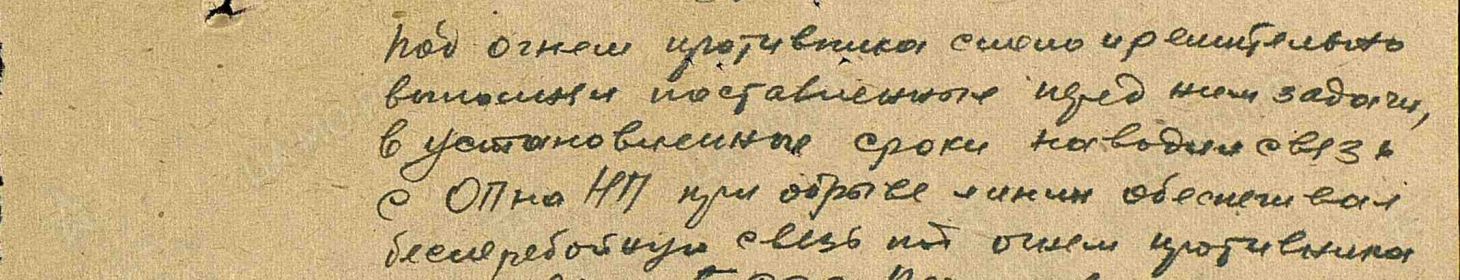 под огнем противника смело и решительно
выполнял поставленные перед ним задачи,
в установленные сроки наводил связь
с ОП на НП при обрыве линии обеспечивал
бесперебойную связь под огнем противника